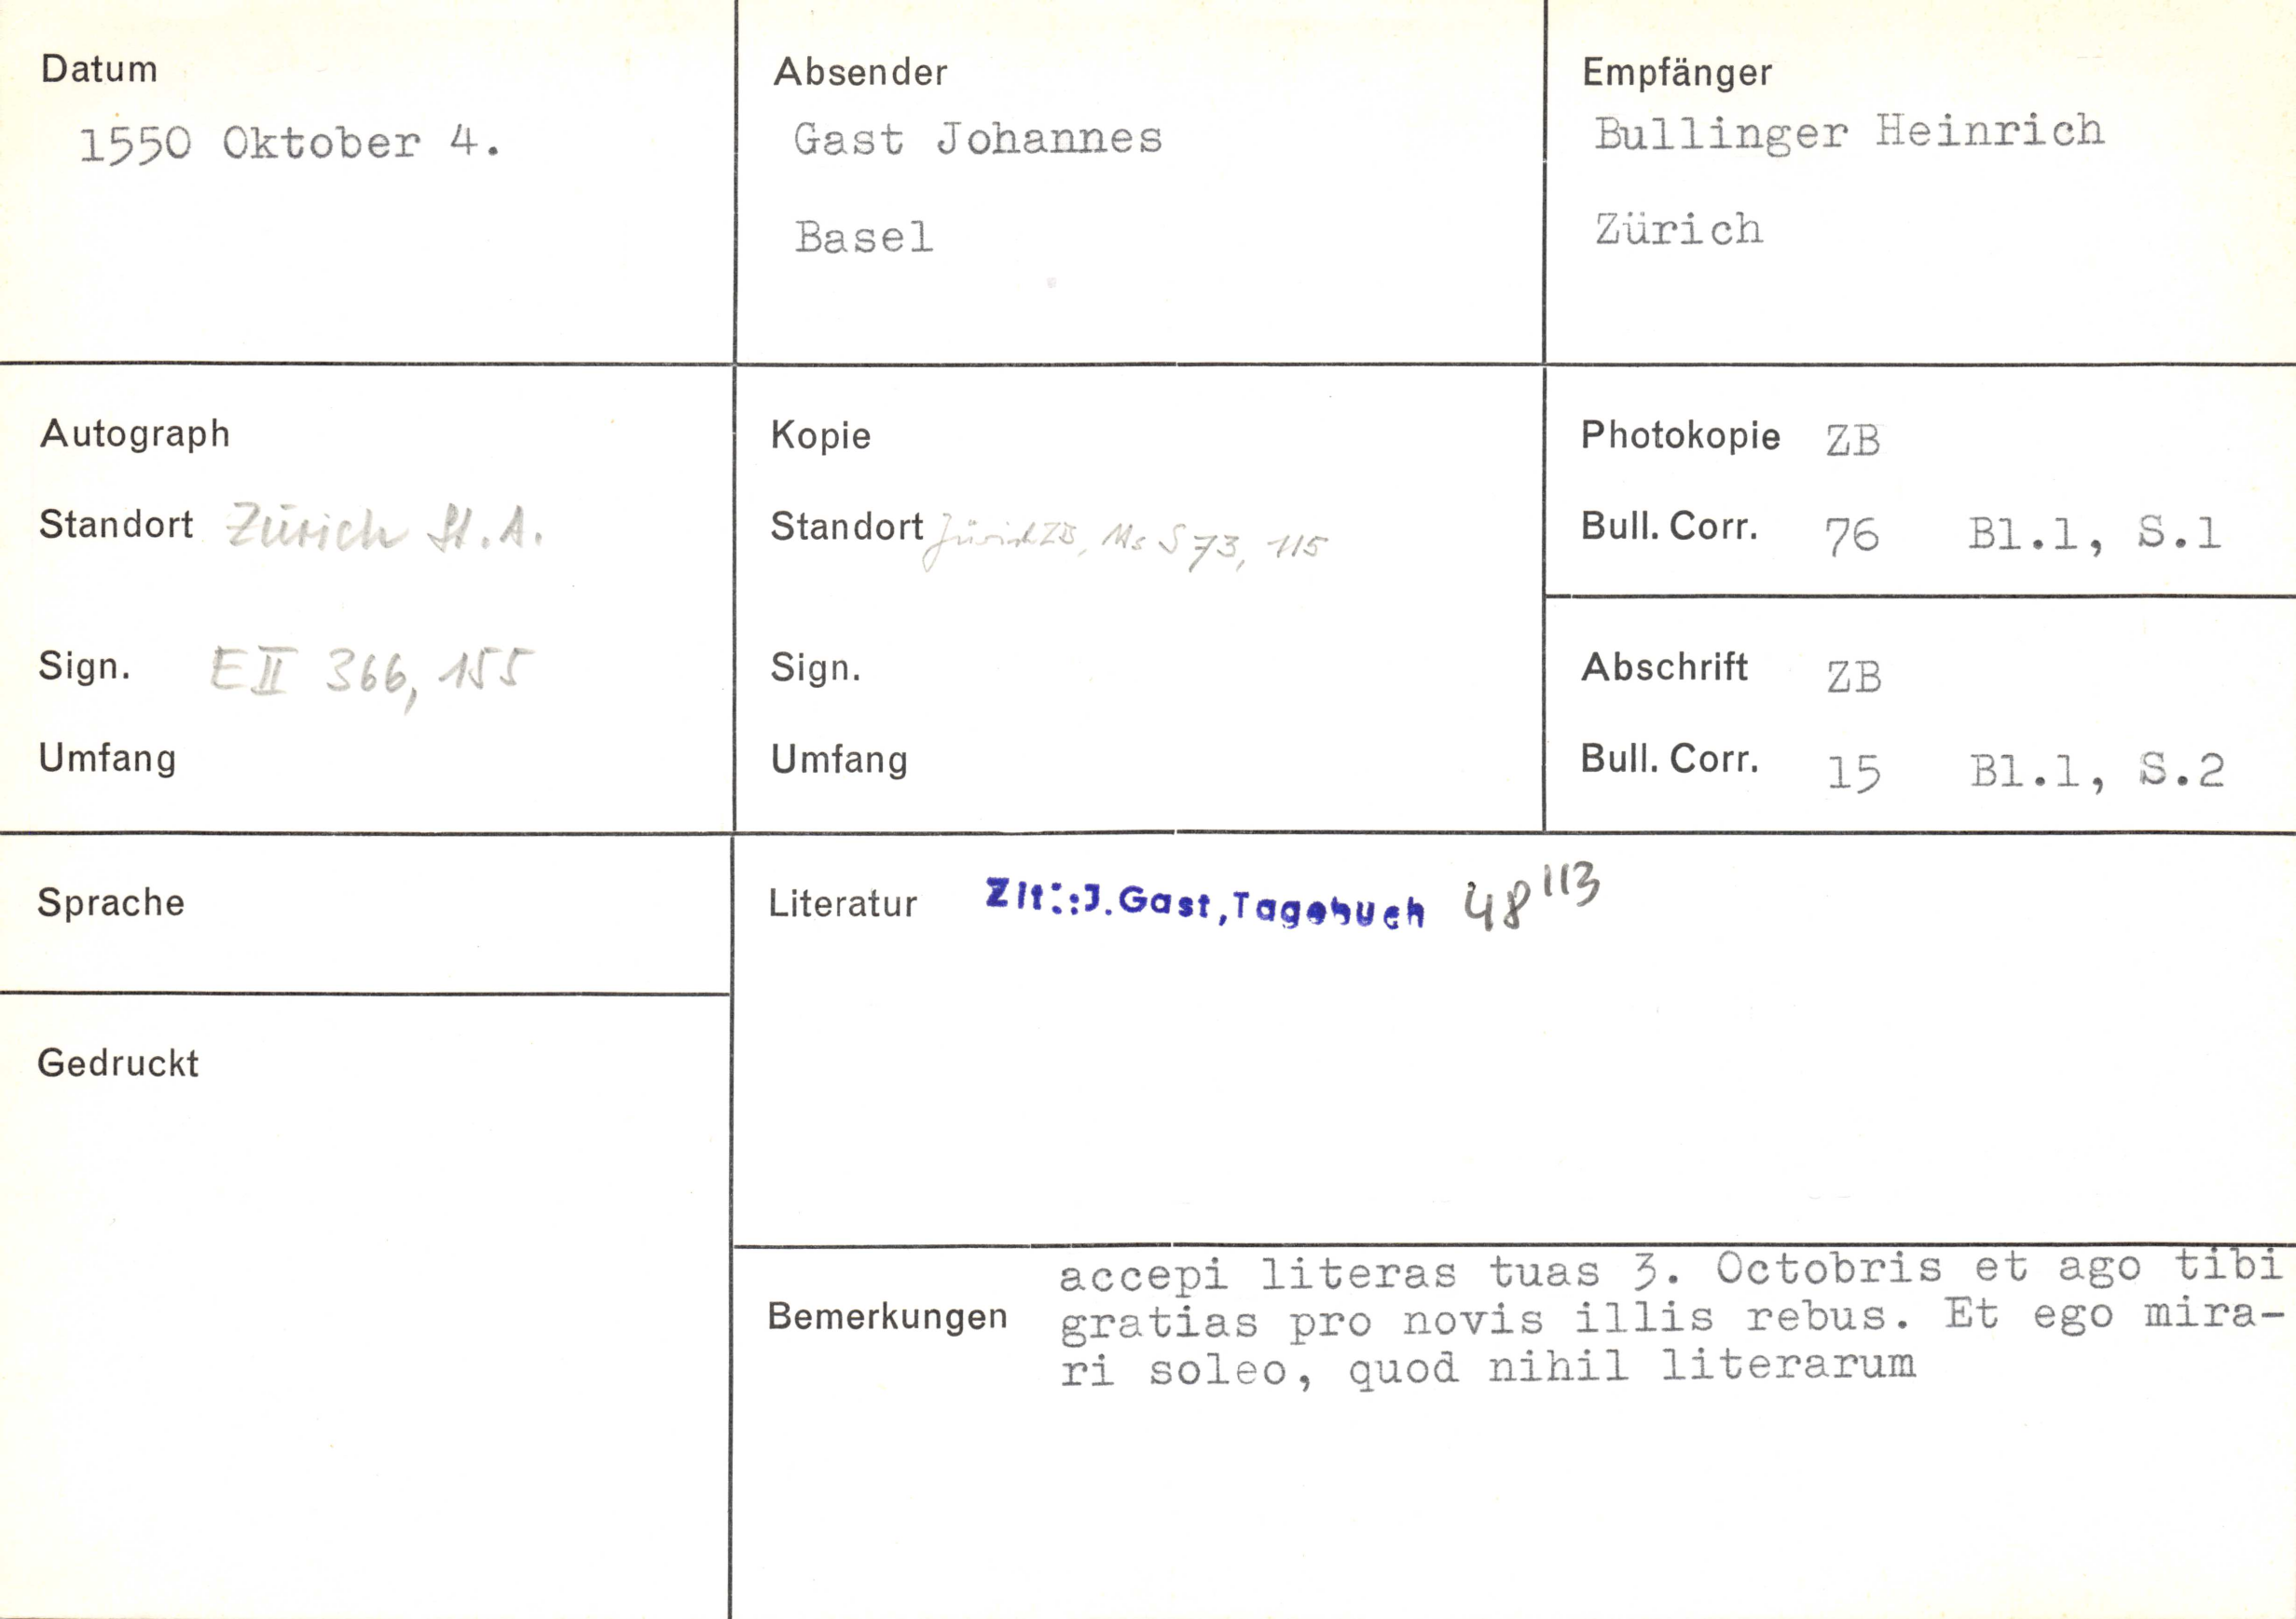 Datum
1550 Oktober 4.
Absender
Gast Johannes
Basel
Empfänger
Bullinger Heinrich
Zürich
Autograph
Standort Zürich St.A.
Sign. E II 366, 155
Umfang
Kopie
Standort Zürich ZB, Ms S 73, 115
Sign.
Umfang
Photokopie ZB
Bull. Corr. 76 Bl.1, S.1
Abschrift ZB
Bull. Corr. 15 Bl.1, S.2
Sprache
Gedruckt
Literatur Zit.:J.Gast,Tagebuch 48 113
Bemerkungen
accepi literas tuas 3. Octobris et ago tibi
gratias pro novis illis rebus. Et ego mira-
ri soleo, quod nihil literarum